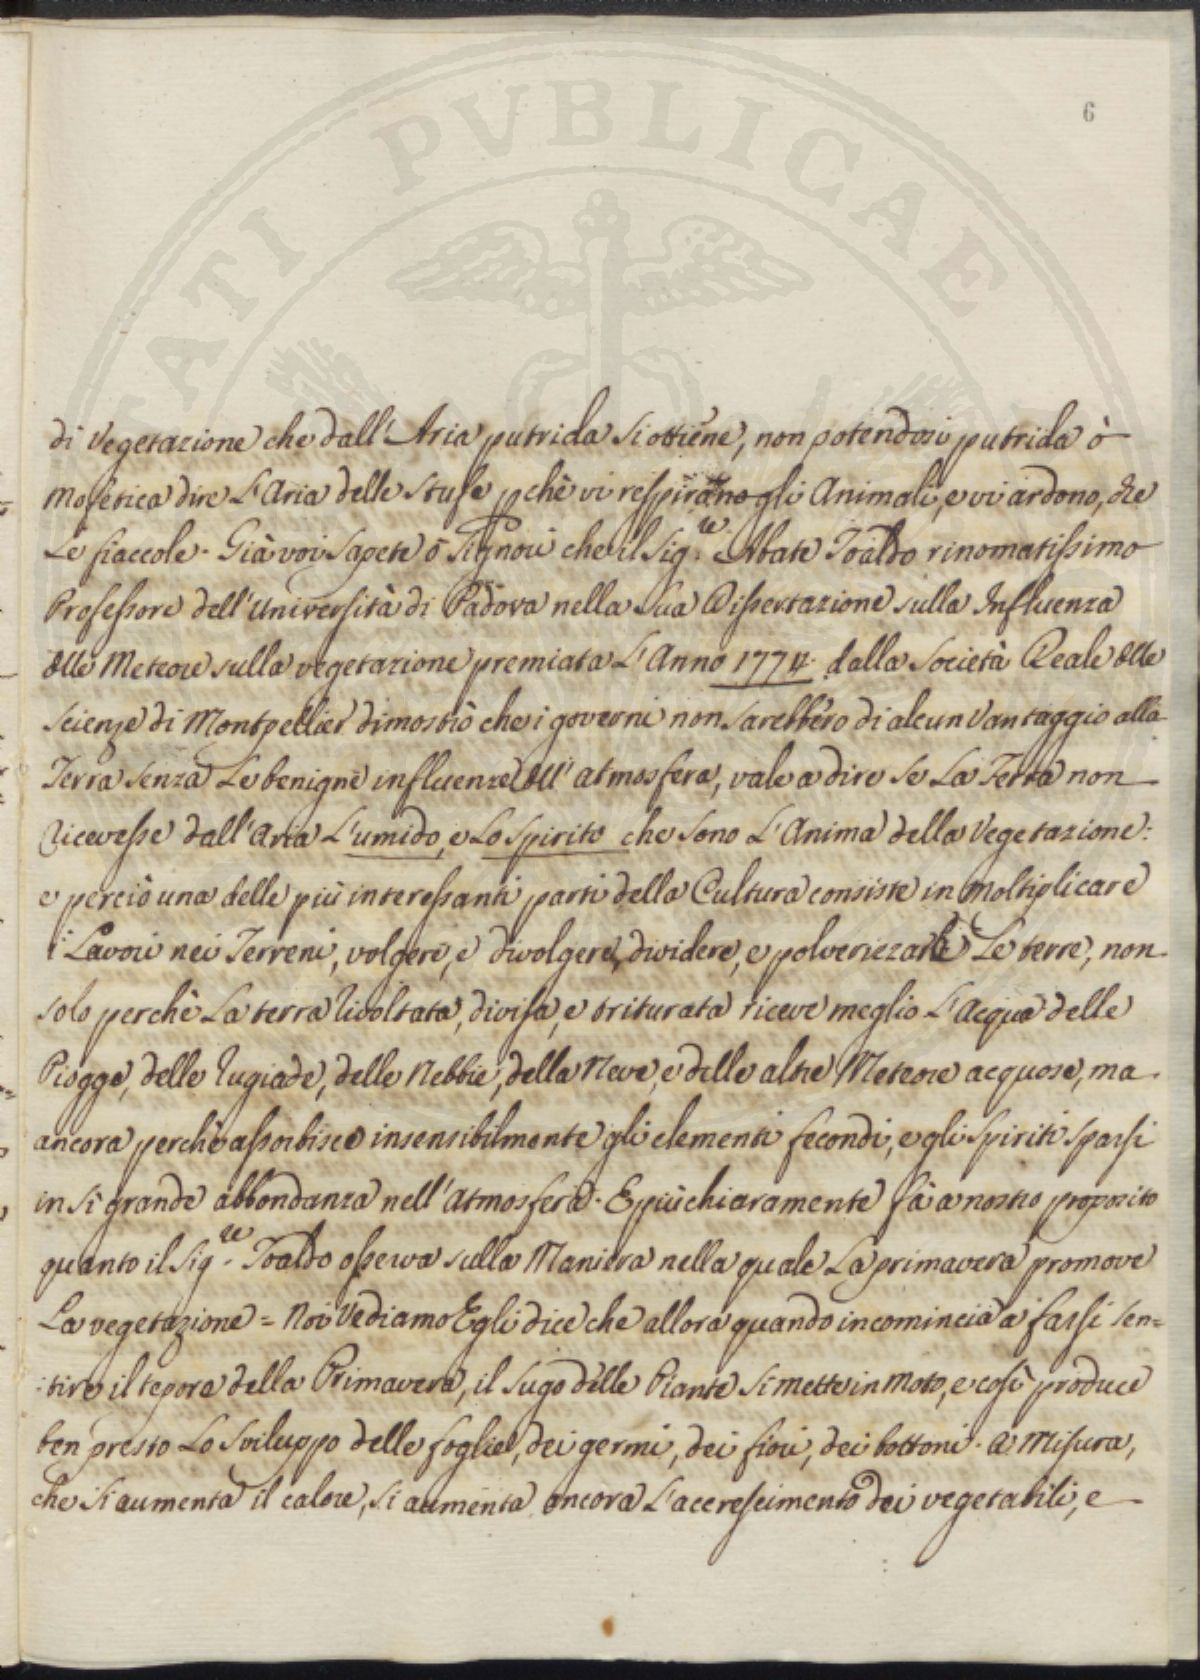 PVBLICAE
TATI
6
di Vegetazione che dall'Aria putrida si ottiene, non potendosi putrida ò
mofetica dire L'Aria delle Stufe pchè vi respirano gli Animali, e vi ardono, che
Le fiaccole. Già voi Sapete ò Signori che il Sig.re Abate Toaldo rinomatissimo
Professore dell'Università di Padova nella Sua Dissertazione sulla Influenza
dlle Meteore sulla vegetazione premiata L'Anno 1774. dalla Società Reale dlle
Scienze di Montpellier dimostrò che i governi non sarebbero di alcun Vantaggio alla
Terra senza Le benigne influenze dll'atmosfera, vale a dire se La Terra non
Ricevesse dall'Aria L'umido, e Lo spirito che sono L'Anima della Vegetazione:
e perciò una delle più interessanti parti della Cultura consiste in moltiplicare
i Lavori nei Terreni, volgere, e divolgere, dividere, e polverizzarle Le terre, non
solo perchè La terra rivoltata, divisa, e triturata riceve meglio L'Acqua delle
Piogge, delle rugiade, delle Nebbie, della Neve, e delle altre Meteore acquose, ma
ancora perchè assorbisce insensibilmente gli elementi fecondi, e gli Spiriti sparsi
in sì grande abbondanza nell'atmosfera. E più chiaramente fà a nostro proposito
quanto il Sig.re Toaldo osserva sulla Maniera nella quale La primavera promove
La vegetazione = Noi Vediamo Egli dice che allora quando incomincia a farsi sen=
:tire il tepore della Primavera, il Sugo delle Piante si mette in moto, e così produce
ben presto Lo Sviluppo delle foglie, dei germi, dei fiori, dei bottoni. a Misura,
che si aumenta il calore, si aumenta ancora L'accrescimento dei vegetabili, e